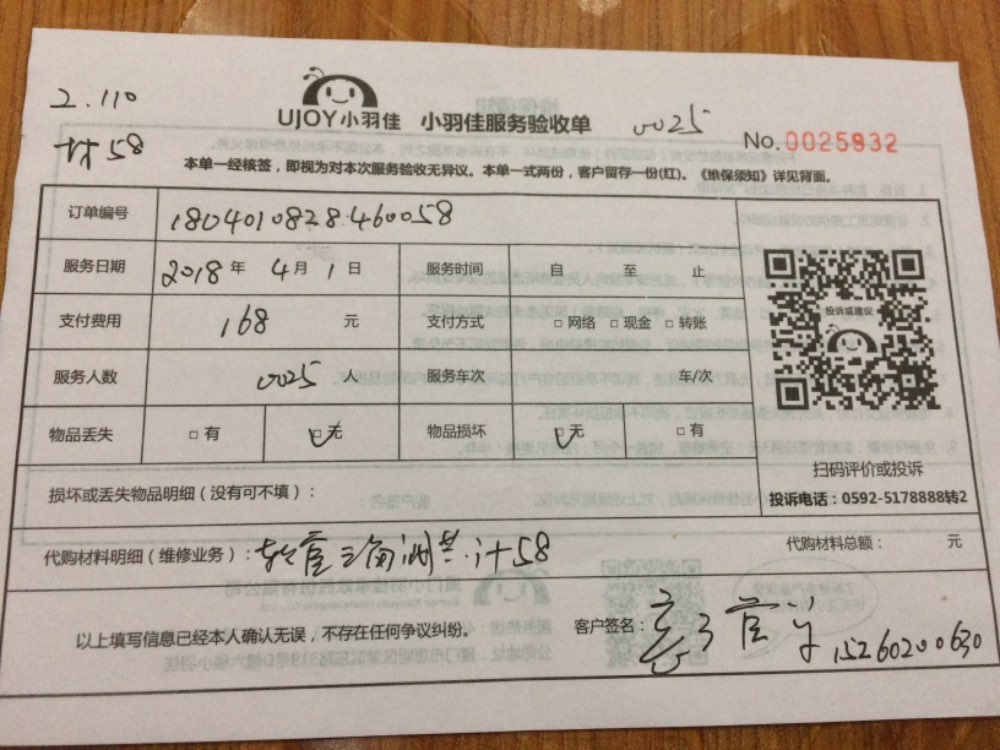 2.110
材58
UJOY小羽佳 小羽佳服务验收单 0025
No.0025932
本单一经核签，即视为对本次服务验收无异议。本单一式两份，客户留存一份(红)。《维保须知》详见背面。
订单编号 1804010828460058
服务日期 2018年 4月 1日 服务时间 自 至 止
支付费用 168 元 支付方式 □网络 □现金 □转账
投诉或建议
服务人数 0025 人 服务车次 车/次
物品丢失 □有 □无 物品损坏 □无 □有
扫码评价或投诉
损坏或丢失物品明细（没有可不填）：
投诉电话：0592-5178888转2
代购材料明细（维修业务）：软管三角阀共计58
代购材料总额： 元
以上填写信息已经本人确认无误，不存在任何争议纠纷。
客户签名： 15260200630